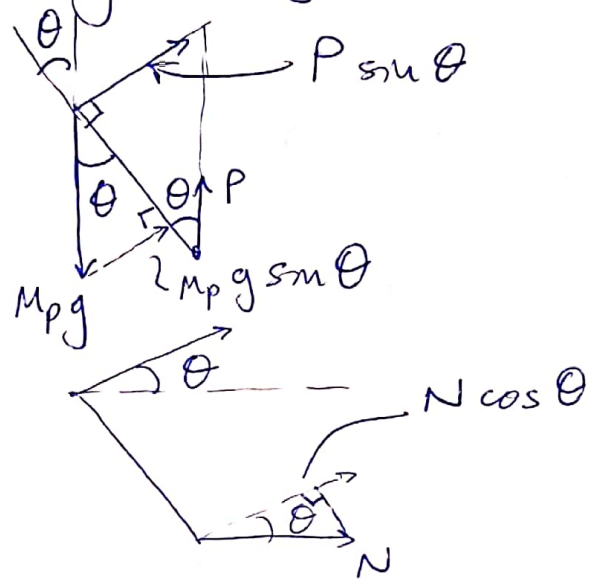 θ
P sin θ
θ
θ
P
Mpg
Mpg sin θ
θ
N cos θ
θ
N